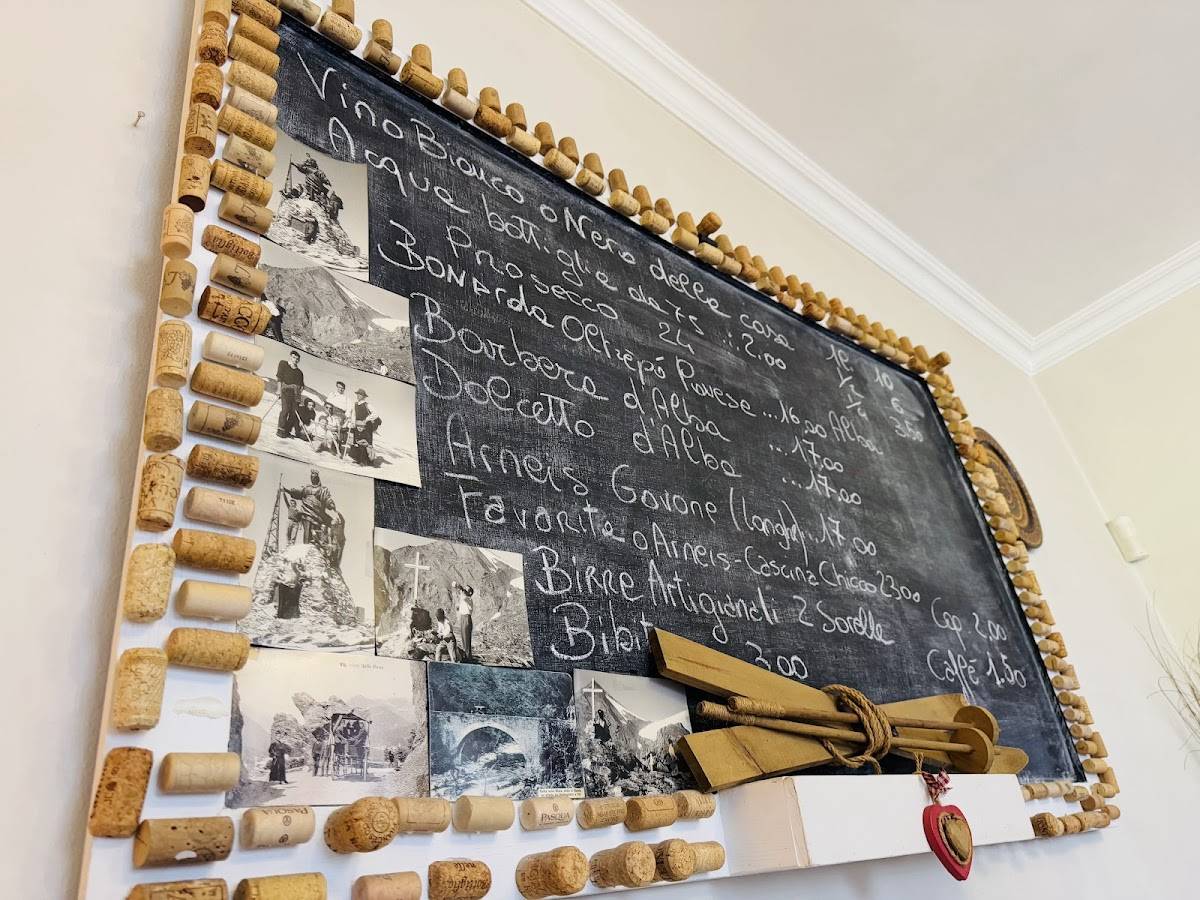 Vino Bianco o Nero della casa 1l 10
½ 6
¼ 3.50
Acqua bottiglia da 75 ... 2.00
Prosecco 24
Bonarda Oltrepó Pavese ... 16,00
Barbera d'Alba Alba ... 17.00
Dolcetto d'Alba ... 17.00
Arneis Govone (Langhe) .. 17.00
Favorita o Arneis - Cascina Chicco 23.00
Birre Artigianali 2 Sorelle
Cap 2,00
Bibit 3.00
Caffé 1.50
PASQUA
PASQUA